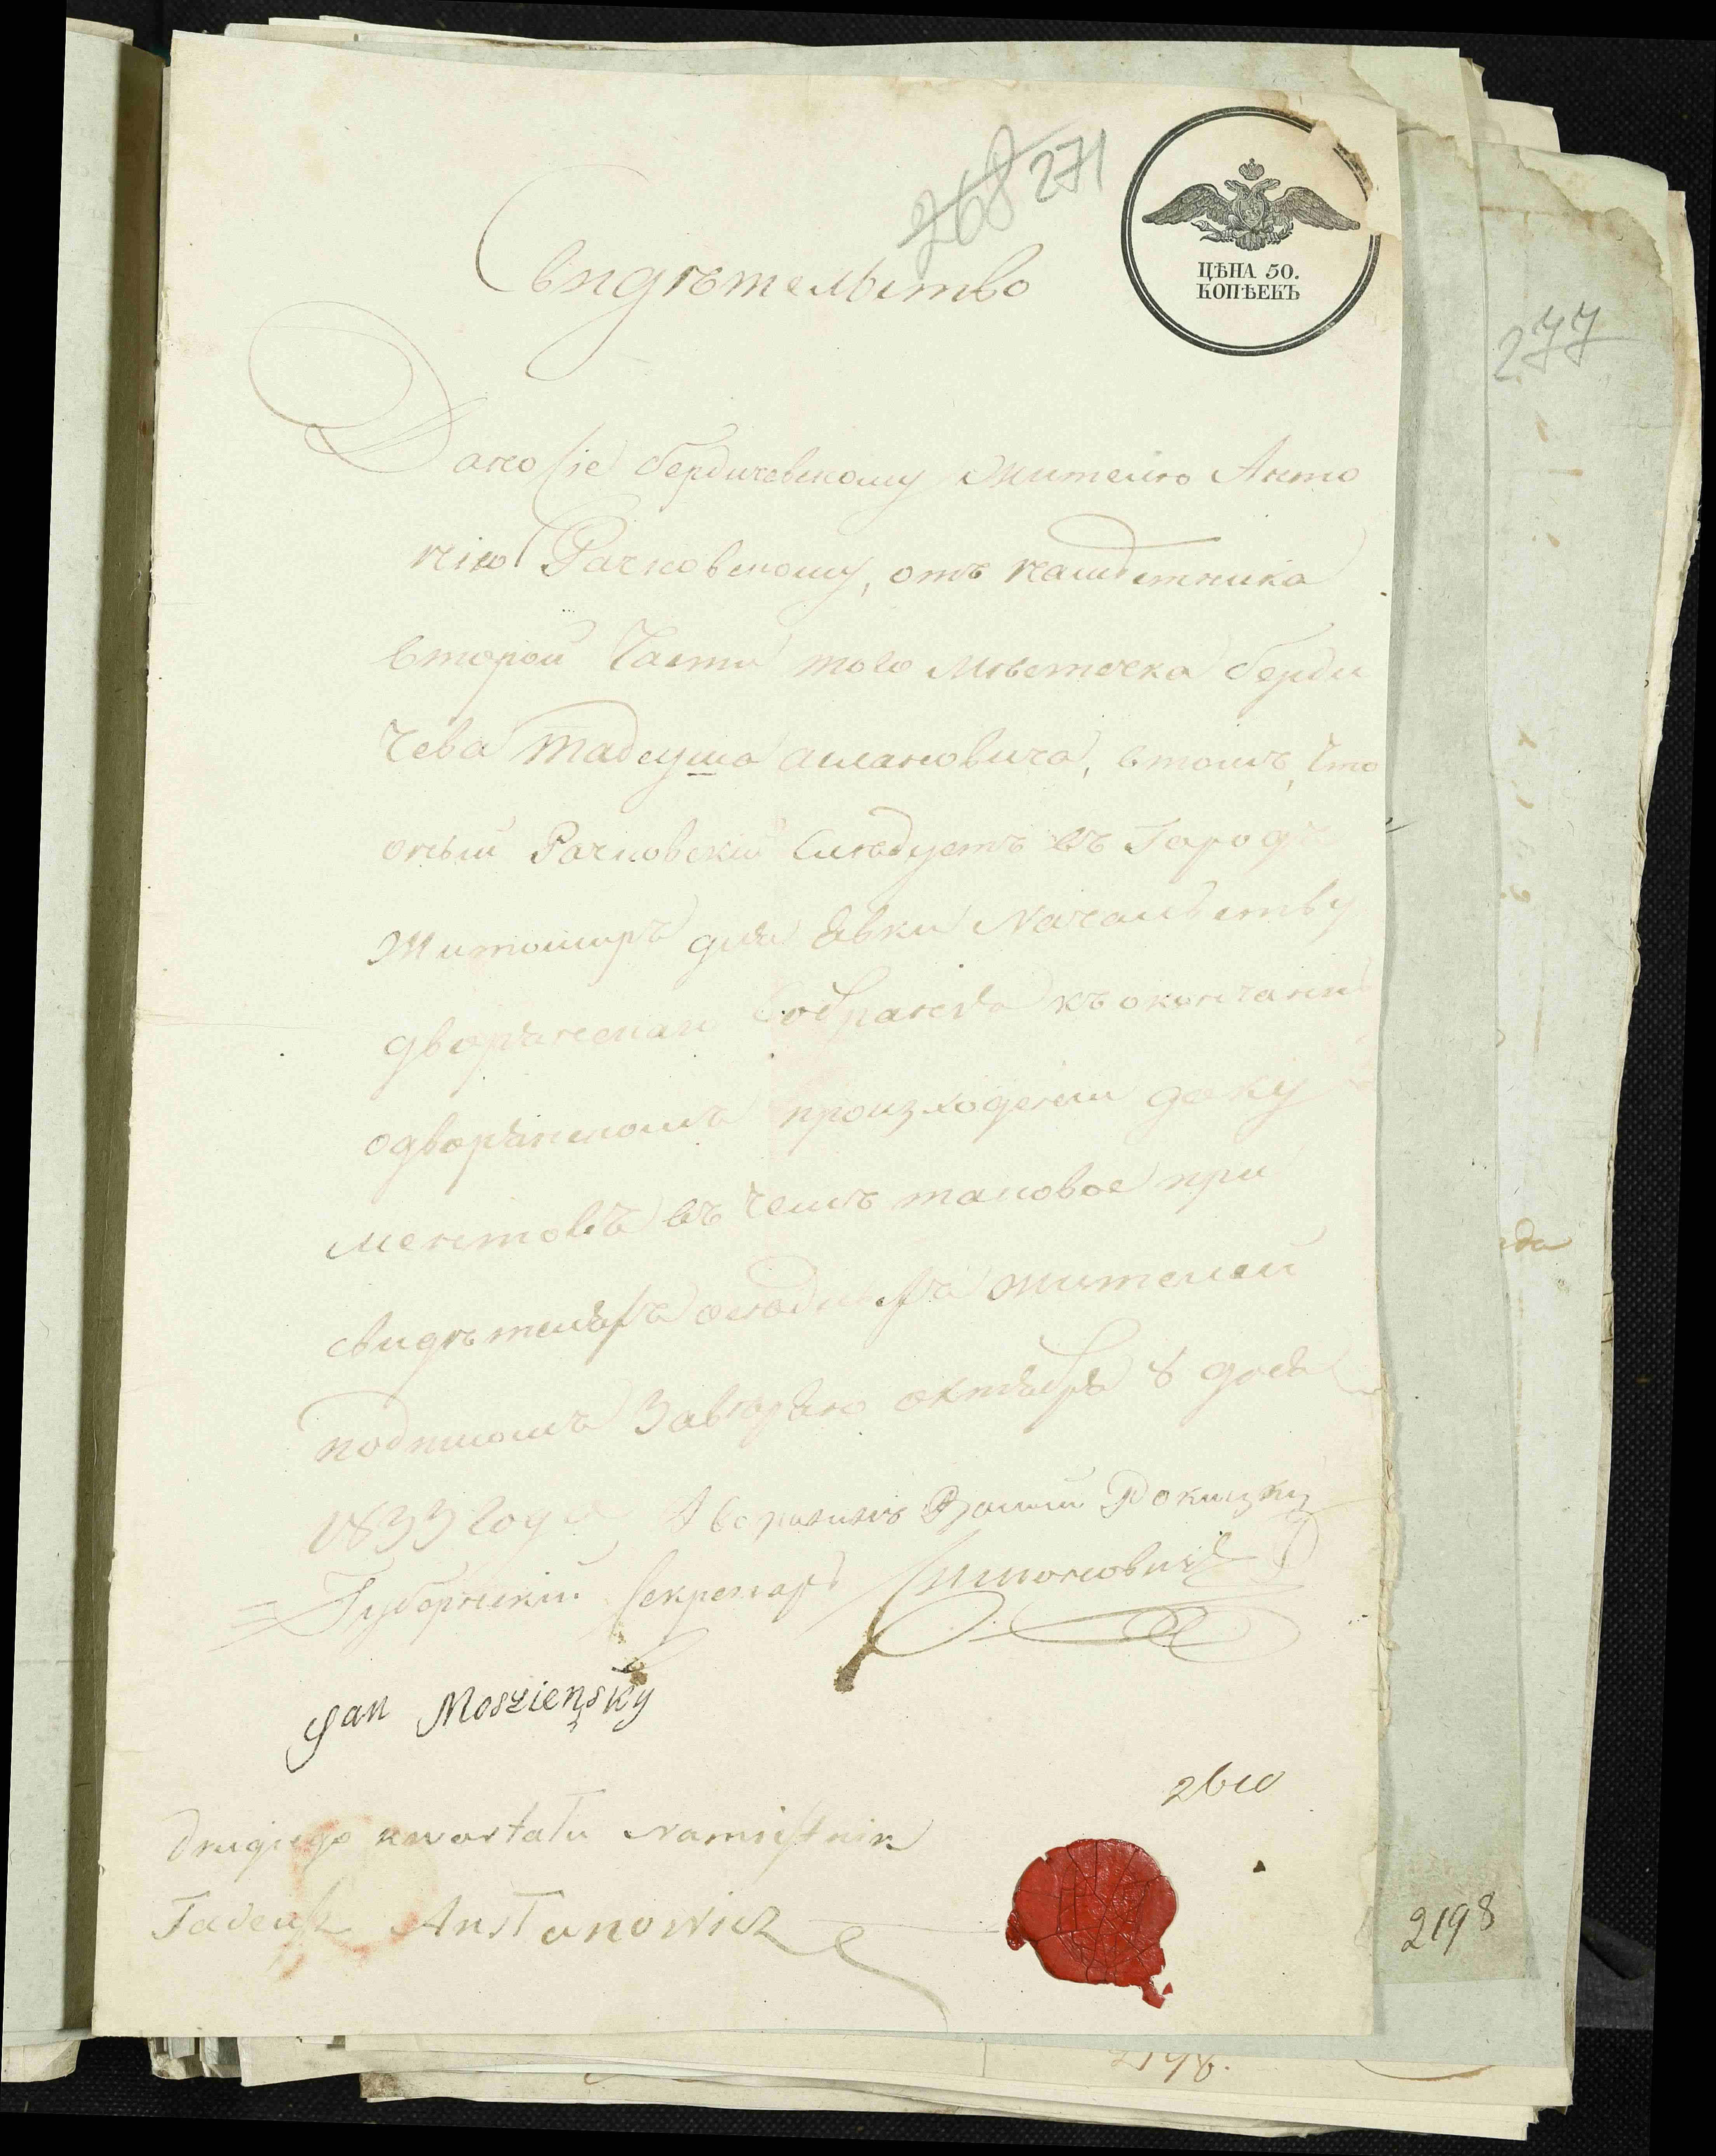 268 271
ЦѢНА 50.
КОПѢЕКЪ
277
Свидѣтельство
Дано сіе бердичевскому жителю Анто
нію Рачковскому, отъ намѣстника
второй Части того мѣстечка берди
чева Тадеуша аслановича, втомъ, что
оный Рачковскій слѣдуетъ въ Городъ
Житомиръ для явки Началству
дворянскаи Собранія къ окончанію
одворянскомъ произходеніи доку
ментовъ въ чемъ таковое при
свидѣтеляхъ жителей
подписомъ Завѣряю октября 8 дня
1833 года Дворянинъ
Губернскій Секретарь Симоновичъ
Jan Moszieński
Drugiego kwartału Namiestnik
Tadeusz
2198
2198.